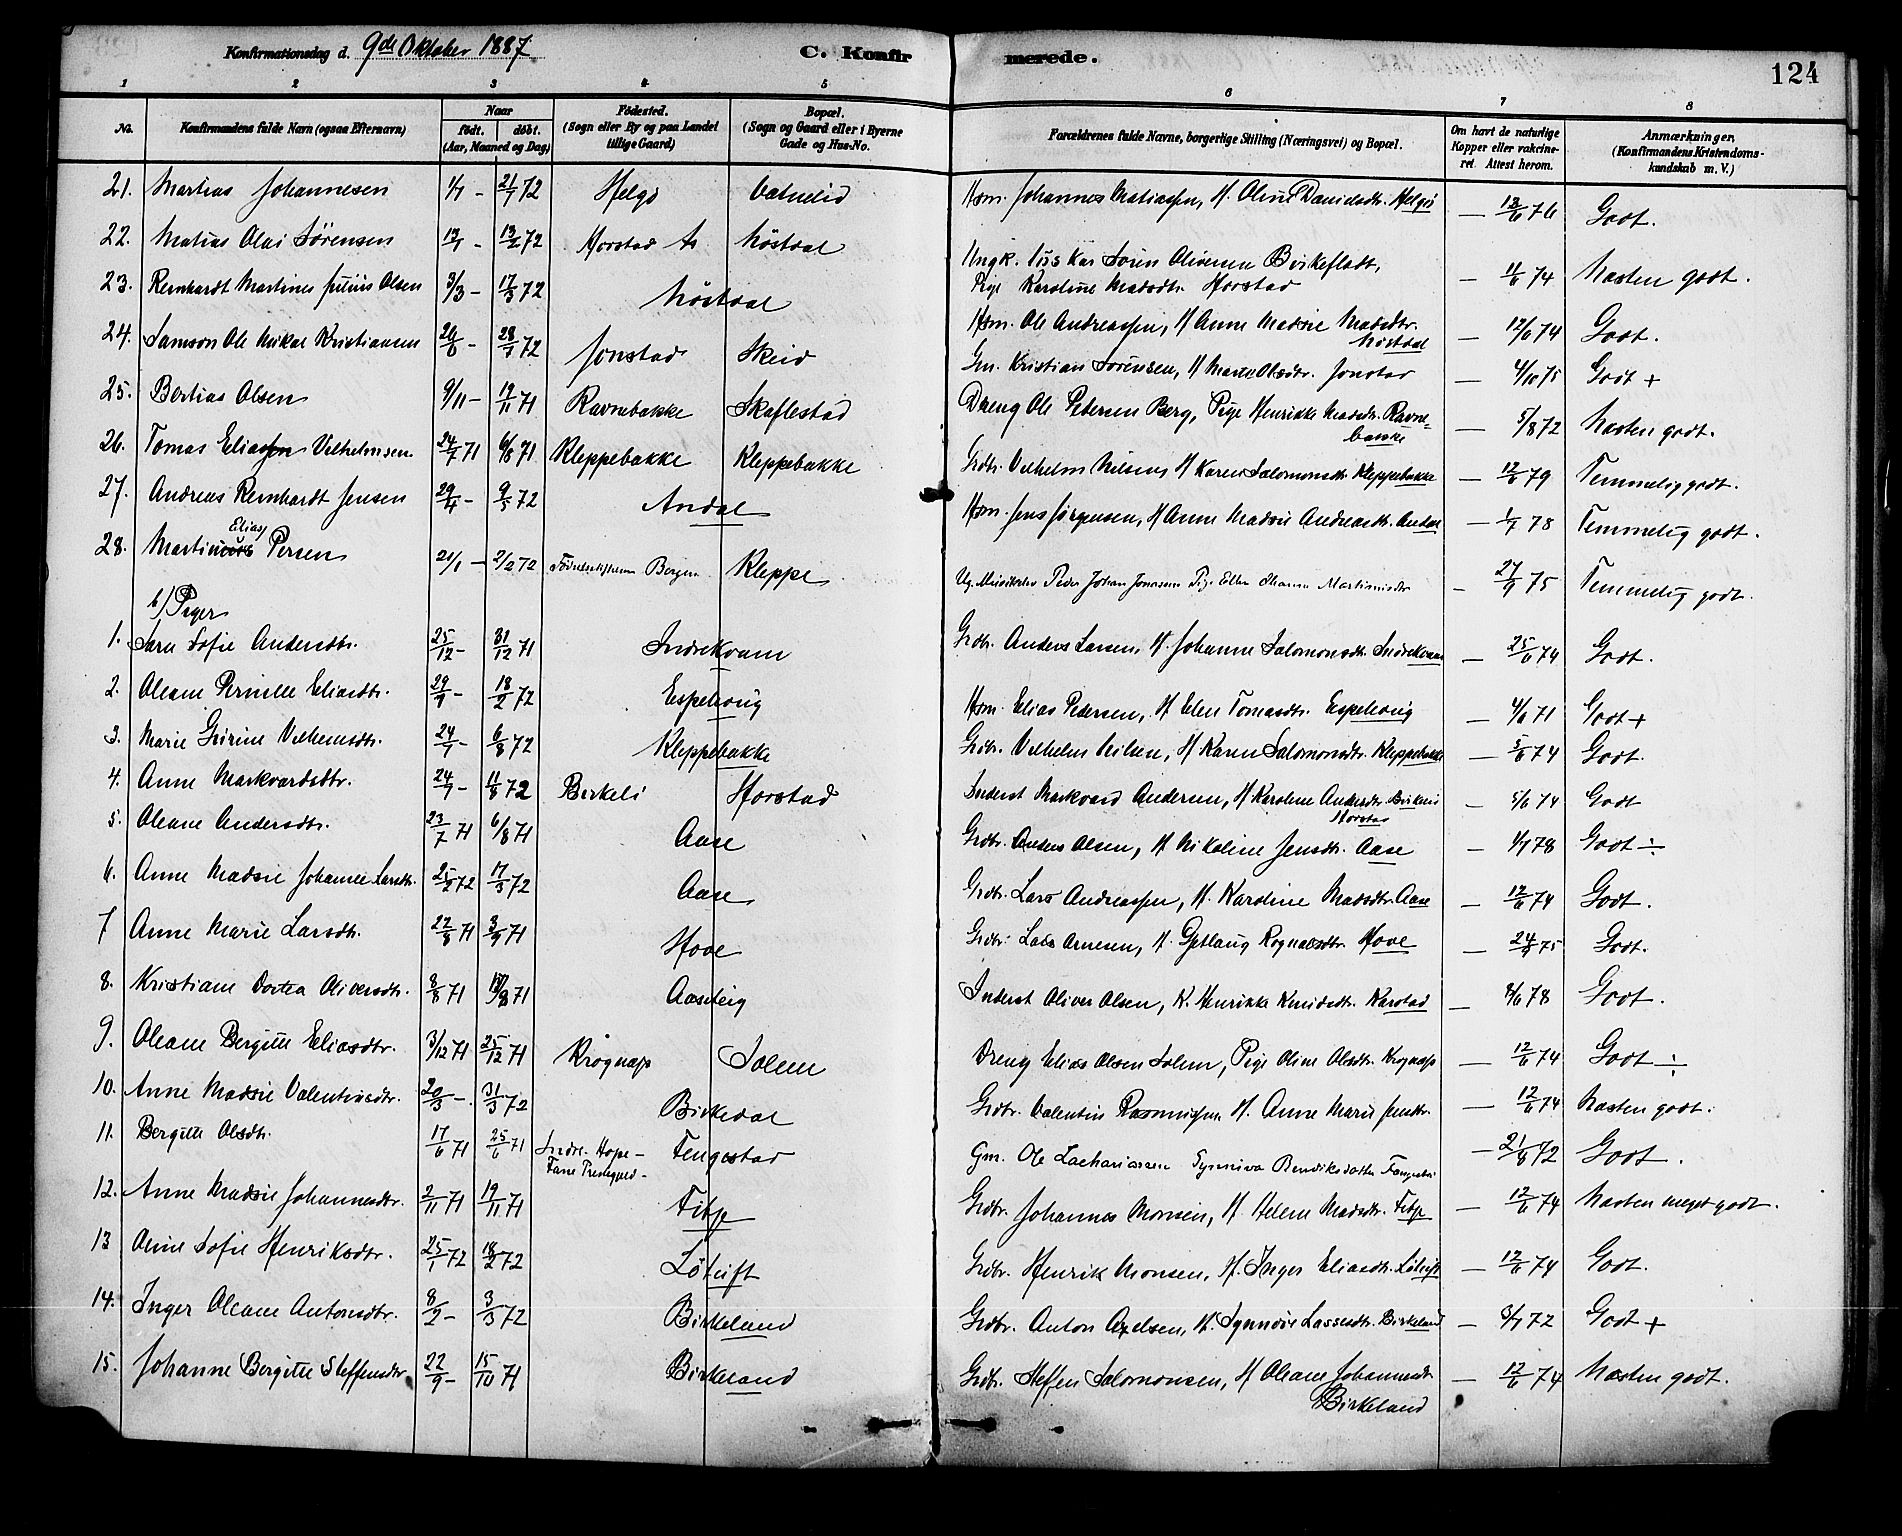 Konfirmationsdag d. 9de Oktober 1887
C. Konfirmerede.
124
1 2 3 4 5 6 7 8
No. Konfirmandens fulde Navn (ogsaa Efternavn) Naar født. døbt. (Aar, Maaned og Dag) Fødested. (Sogn eller By og paa Landet tillige Gaard) Bopæl. (Sogn og Gaard eller i Byerne Gade og Hus-No. Forældrenes fulde Navne, borgerlige Stilling (Næringsvei) og Bopæl. Om havt de naturlige Kopper eller vaccineret. Attest herom. Anmærkninger, (Konfirmandens Kristendomskundskab m. V.)
21. Martias Johannesen 1/7 – 21/7 72 Helgø Johannes Matiassen, H. Oline Danielsdtr. Helgø — 13/6 76 Godt.
22. Matias Olai Sørensen 13/1 – 13/2 72 Horstad Nøstdal Ungk. Søren Oliversen Birkefladt, Pige Karoline Madsdtr. Horstad — 11/6 74 Næsten godt.
23. Reinhardt Martines Julius Olsen 3/3 – 17/3 72 Nøstdal Hsm. Ole Andreassen, H Anne Madsie Madsdtr. Nøstdal — 12/6 74 Godt.
24. Samson Ole Mikal Kristiansen 28/7 72 Jonstad Skeid Gm. Kristian Sørensen, H Marte Olsdtr. Jonstad — 4/10 75 Godt +
25. Bertias Olsen 9/11 – 19/11 71 Ravnebakke Skaflestad Dreng Ole Pedersen Berg, Pige Henrikke Madsdtr. Ravnebakke — 5/8 72 Næsten godt.
26. Tomas Eliassen Vilhelmsen 24/7 71 6/8 71 Kleppebakke Kleppebakke Grdbr. Vilhelm Nilsen, H Karen Salomonsdtr. Kleppebakke — 12/6 79 Temmelig godt.
27. Andreas Reinhardt Jensen 29/4 – 9/5 72 Andal Hsm. Jens Jørgensen, H Anne Madsie Andreasdtr. Andal — 1/7 78 Temmelig godt.
28. Martin Elias Persen 21/1 – 2/2 72 Fødselsstiftelsen Bergen Kleppe Ug. Peder Johan Jonassen Pige Ellen Martinusdtr — 27/9 75 Temmelig godt.
b) Piger
1. Sara Sofie Andersdtr. 25/12 – 31/12 71 Indrekvam Grdbr. Anders Larsen, H. Johanne Salomonsdtr. Indrekvam — 25/6 74 Godt.
2. Oleane Pernille Eliasdtr. 29/9 – 18/2 72 Espehøug Hsm. Elias Pedersen, H Elen Tomasdtr. Espehøug — 4/6 71 Godt +
3. Marie Girine Vilhelmsdtr. 24/7 – 6/8 72 Kleppebakke Grdbr. Vilhelm Nilsen, H Karen Salomonsdtr. Kleppebakke — 5/6 74 Godt.
4. Anne Markvardsdtr. 24/7 – 11/8 72 Birkeli Horstad Inderst Markvard Andersen, H Karoline Andersdtr. Birkeli Horstad — 5/6 74 Godt
5. Oleane Andersdtr. 23/7 71 6/8 71 Aase Grdbr. Anders Olsen, H Nikoline Jensdtr. Aase — 1/7 78 Godt ÷
6. Anne Madsie Johanne Larsdtr. 25/2 72 17/3 72 Aase Grdbr. Lars Andreassen, H. Karoline Madsdtr. Aase — 12/6 74 Godt.
7 Anne Marie Larsdtr. 22/8 71 3/9 71 Hove Grdbr. Lars Arnesen, H. Gjetlaug Rognaldsdtr. Hove — 24/9 75 Godt.
8. Kristiane Dortea Oliversdtr. 8/8 71 13/8 71 Aaseteig Inderst Oliver Olsen, K. Henrikke Knudsdtr. Karstad — 8/6 78 Godt.
9. Oleane Bergitte Eliasdtr. 3/12 71 25/12 71 Krognæs Solem Dreng Elias Olsen Solem, Pige Oline Olsdtr. Krognæs — 12/6 74 Godt ÷
10. Anne Madsie Valentinsdtr. 20/3 – 31/3 72 Birkedal Grdbr. Valentin Rasmussen H. Anne Marie Jensdtr. — 12/6 74 Næsten godt.
11. Bergitte Olsdtr. 17/6 71 25/6 71 Indre-Hope – Fane Prestegjeld – Tengestad Gm. Ole Zachariassen Synneva Bendiksdatter — 21/8 72 Godt.
12. Anne Madsie Johannesdtr. 2/11 71 19/11 71 Fitje Grdbr. Johannes Monsen, H. Helene Madsdtr. Fitje — 12/6 74 Næsten meget godt.
13 Oline Sofie Henriksdtr. 25/1 72 18/2 72 Løtuft Grdbr. Henrik Monsen, H. Inger Eliasdtr. Løtuft — 12/6 74 Godt.
14. Inger Oleane Antonsdtr. 8/2 – 3/3 72 Birkeland Grdbr. Anton Axelsen, K. Synnøve Lassesdtr. Birkeland — 3/7 72 Godt +
15. Johanne Bergitte Steffensdtr 22/9 – 15/10 71 Birkeland Grdbr. Steffen Salomonsen, H Oleane Johannesdtr. Birkeland — 12/6 74 Næsten godt.